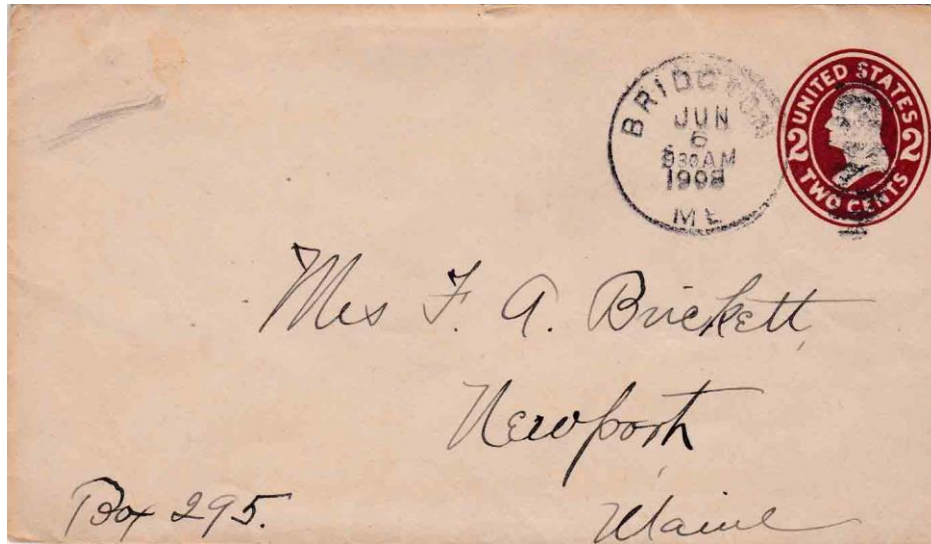 BRIDGTON
JUN
6
30 AM
1908
ME
UNITED STATES
2 2
TWO CENTS
Mrs F. A. Brickett,
Newport
Maine
Box 295.